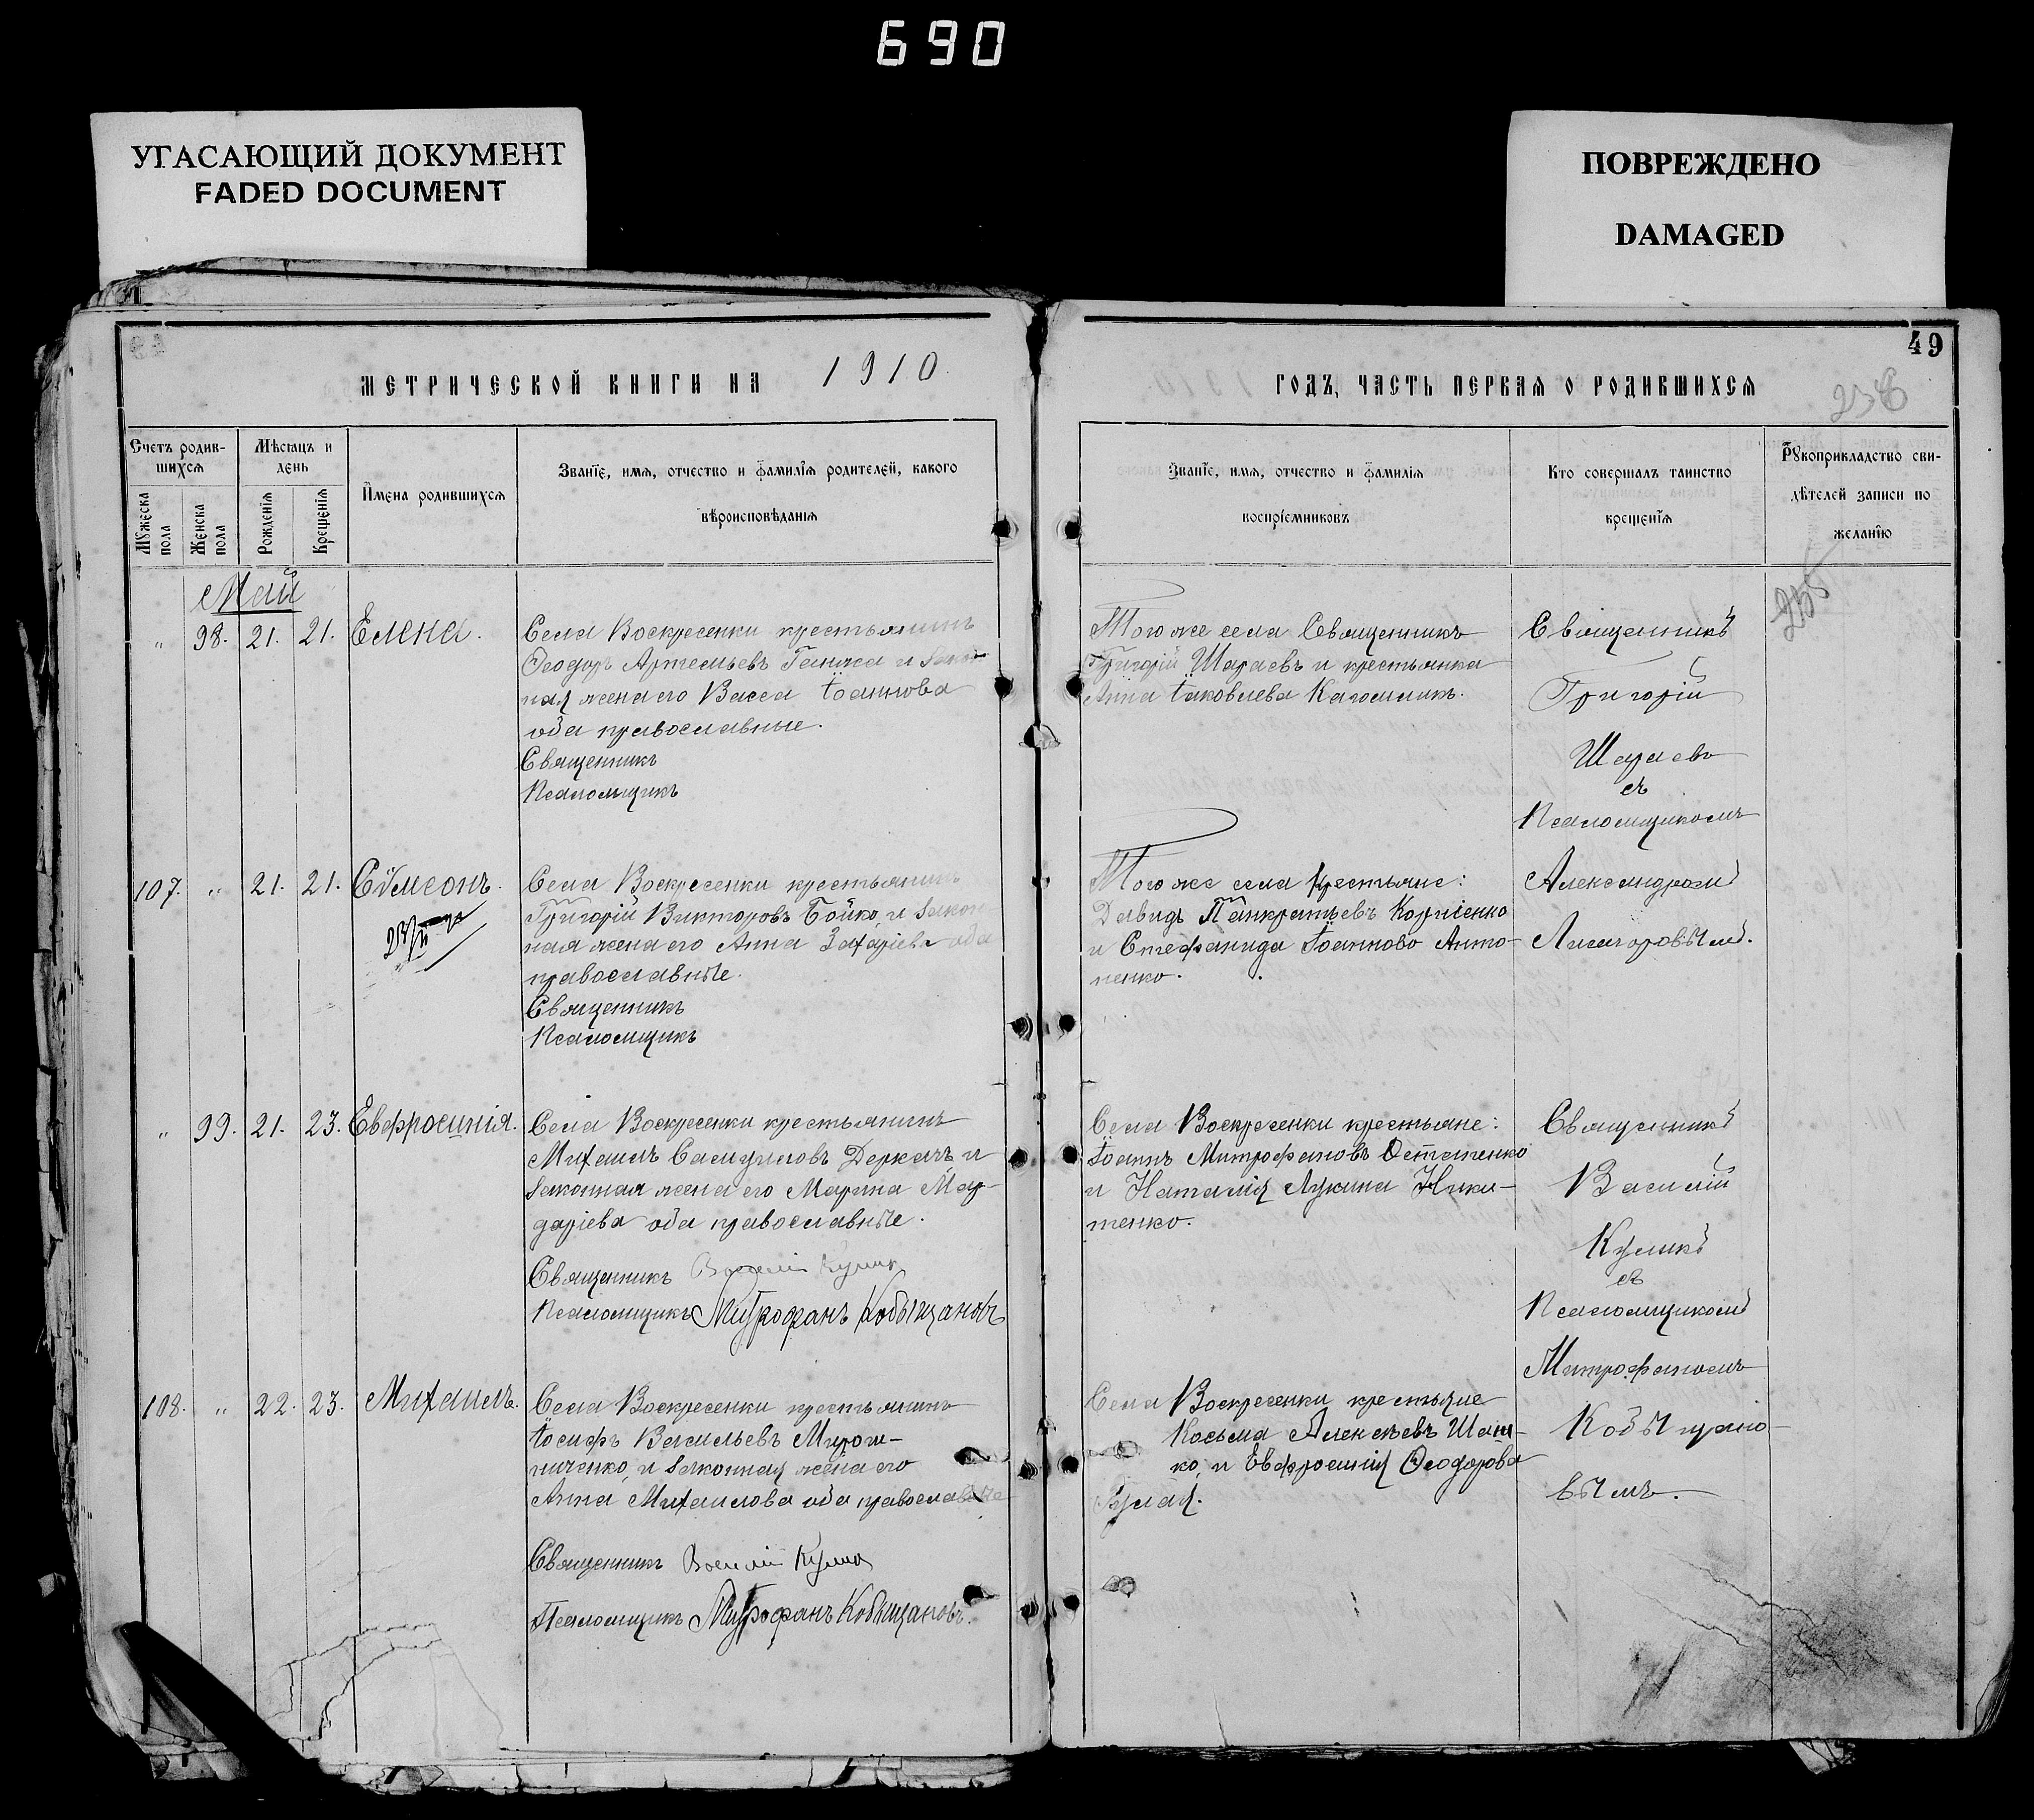 690
УГАСАЮЩИЙ ДОКУМЕНТ
FADED DOCUMENT
ПОВРЕЖДЕНО
DAMAGED
49
МЕТРИЧЕСКОЙ КНИГИ НА 1910
ГОДЪ, ЧАСТЬ ПЕРВАЯ О РОДИВШИХСЯ
Счетъ родившихся
Мѣсяцъ и день
Мужеска пола
Женска пола
Рожденія
Крещенія
Имена родившихся
Званіе, имя, отчество и фамилія родителей, какого
вѣроисповѣданія
Званіе, имя, отчество и фамилія
воспріемниковъ
Кто совершалъ таинство
крещенія
Рукоприкладство сви-
дѣтелей записи по
желанію
Май
„ 98. 21. 21. Елена.
Села Воскресенки крестьянинъ
Ѳеодоръ Артемьевъ и закон
ная жена его Васса Іоаннова
оба православные.
Священникъ
Псаломщикъ
Того же села Священникъ
Григорій Шараевъ и крестьянка
Анна Іаковлева
Священникъ
Григорій
Шараевъ
съ
Псаломщикомъ
Александромъ
107. „ 21. 21. Сѵмеонъ.
Села Воскресенки крестьянинъ
Григорій Викторовъ Бойко, и закон
ная жена его Анна Захаріева оба
православные.
Священникъ
Псаломщикъ
Того же села крестьяне:
Давидъ Панкратьевъ Корніенко
и Стефанида Іоаннова Анто-
ненко.
„ 99. 21. 23. Евфросинія.
Села Воскресенки крестьянинъ
Михаилъ Самуиловъ Деркачъ и
законная жена его Марина Мар-
даріева оба православные.
Священникъ Василій Кулик
Псаломщикъ Митрофанъ Кобыщановъ
Села Воскресенки крестьяне:
Іоаннъ Митрофановъ Остапенко
и Наталія Лукина Ники-
тенко.
Священникъ
Василій
Куликъ
съ
Псаломщикомъ
Митрофаномъ
Кобыщано-
вымъ.
108. „ 22. 23. Михаилъ.
Села Воскресенки крестьянинъ
Іосифъ Васильевъ Мирош-
ниченко, и законная жена его
Анна Михаилова оба православные
Священникъ Василій Кулик
Псаломщикъ Митрофанъ Кобыщановъ.
Села Воскресенки крестьяне
Косьма Алексѣевъ
ко, и Евфросинія Ѳеодорова